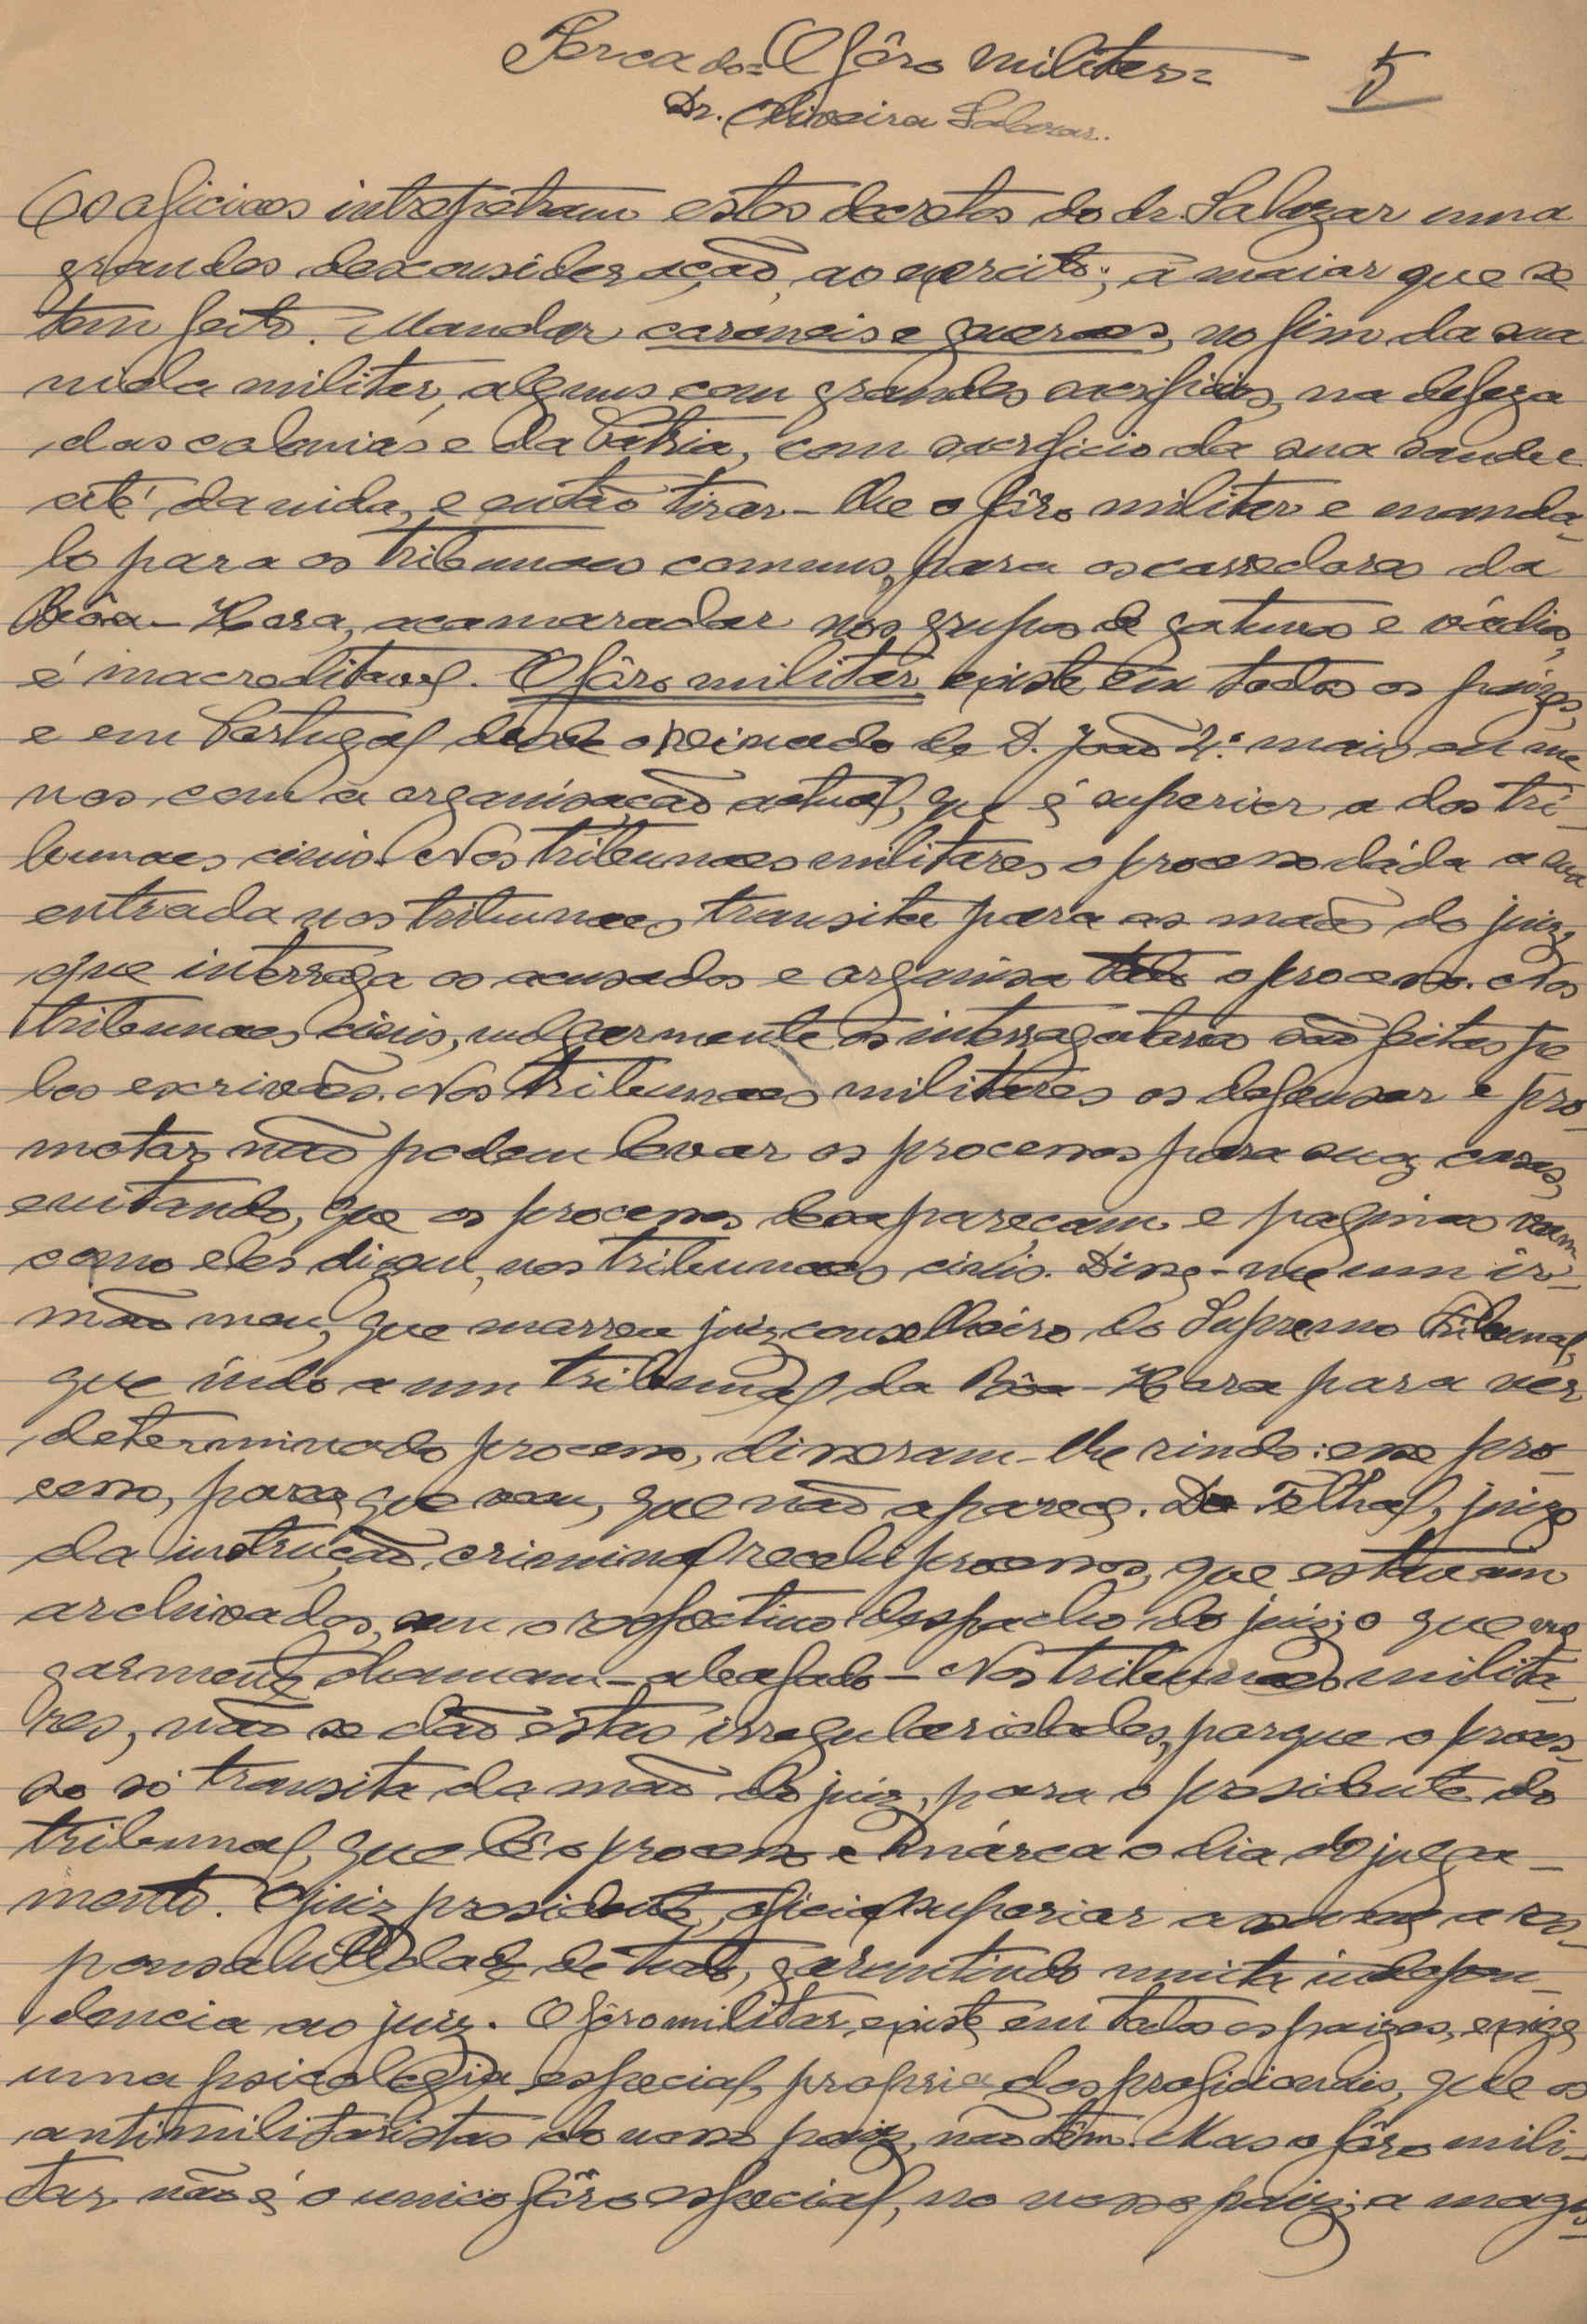 Perca do = O fôro militar =
5
Dr. Oliveira Salazar.
Os oficiaes intrepetram estes decretos do dr. Salazar uma
grandes desconsideração, ao exercito; a maior que se
tem feito. Mandar coroneis e generaes, no fim da sua
vida militar, alguns com grandes sacrificios, na defeza
das colonias e da Patria, com sacrificio da sua saude e
até, da vida, e então tirar-lhe o fôro militar e manda-
lo para os tribunaes comuns, para os corredores da
Bôa-Hora, acamaradar nos grupos de gatunos e vádios,
é inacreditavel. O fôro militar existe em todos os paizes,
e em Portugal desde o reinado de D. João 4.º mais ou me
nos com a organisação actual, que é superior a dos tri-
bunaes civis. Nos tribunaes militares o processo dáda a sua
entrada nos tribunaes transita para as mãos do juiz,
que interróga os acusados e organisa todo o processo. Nos
tribunaes civis, vulgarmente os interrogatorios são feitos pe
los escrivães. Nos tribunaes militares os defensor e pro-
motor, não podem levar os processos para suas casas,
evitando, que os processos desapareçam e paginas voam,
como eles dizem, nos tribunaes civis. Disse-me um ir-
mão meu, que morreu juiz conselheiro do Supremo Tribunal,
que indo a um tribunal da Bôa-Hora para vêr
determinado processo, disseram-lhe rindo: esse pro-
cesso, parece que voou, que não aparece. Do Telhal, juizo
da instrução criminal recebi processos, que estavam
archivados, sem o respectivo despacho do juiz; o que vul
garmente chamam - abafado - Nos tribunaes milita-
res, não se dão estas irregularidades, porque o proces-
so só transita da mão do juiz, para o presidente do
tribunal, que lê o processo e márca o dia do julga-
mento. O juiz presidente, oficial superior assume a res-
ponsabilidade de tudo, garantindo muita indepen-
dencia ao juiz. O fôro militar, existe em todos os paizes, exige
uma psicologia especial, propria dos proficionais, que os
antimilitaristas do nosso paiz, não têm. Mas o fôro mili-
tar, não é o unico fôro especial, no nosso paiz; a magis-